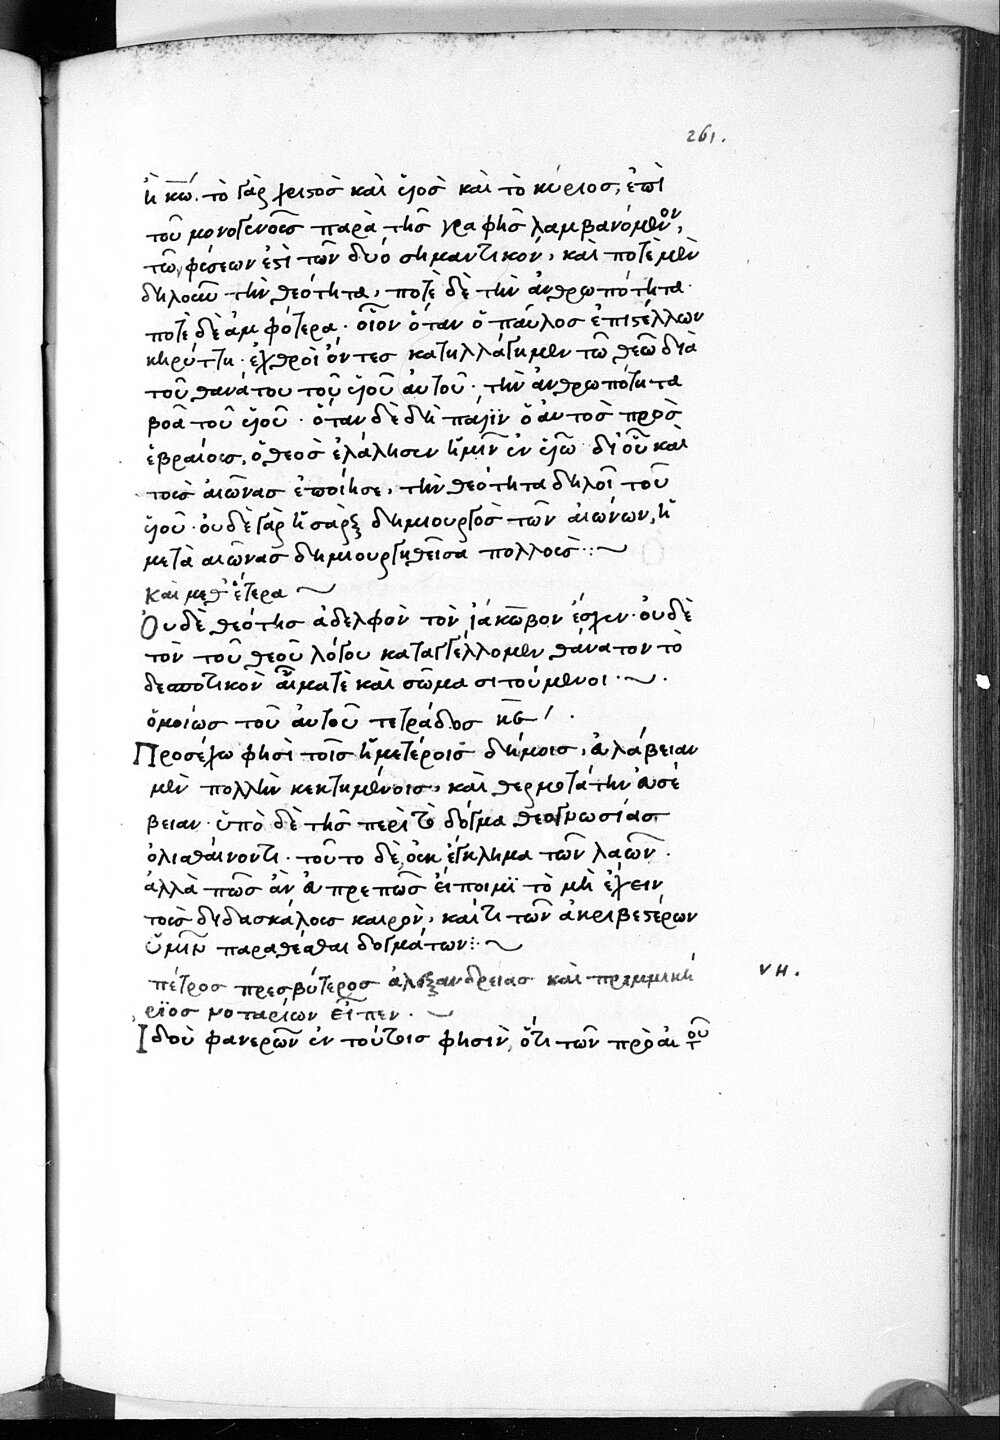 261.
ἢ κ̅ω̅. τὸ γὰρ χριστὸς καὶ υἱὸς καὶ τὸ κύριος, ἐπὶ
τοῦ μονογενοῦς παρὰ τῆς γραφῆς λαμβανόμενον,
τῶν φύσεων ἐστὶ τῶν δύο σημαντικόν, καὶ ποτὲ μὲν
δηλοῦν τὴν θεότητα, ποτὲ δὲ τὴν ἀνθρωπότητα·
ποτὲ δὲ ἀμφότερα· οἷον ὅταν ὁ παῦλος ἐπιστέλλων
κηρύττη· ἐχθροὶ ὄντες κατηλλάγημεν τῶ θεῶ διὰ
τοῦ θανάτου τοῦ υἱοῦ αὐτοῦ· τὴν ἀνθρωπότητα
βοᾶ τοῦ υἱοῦ· ὅταν δὲ δὴ πάλϊν ὁ αὐτὸς πρὸς
ἑβραίους, ὁ θεὸς ἐλάλησεν ἡμῖν ἐν υἱῶ δι' οὗ καὶ
τοὺς αἰῶνας ἐποίησε, τὴν θεότητα δηλοῖ τοῦ
υἱοῦ· οὐδὲ γὰρ ἡ σὰρξ δημιουργὸς τῶν αἰώνων, ἡ
μετὰ αἰῶνας δημιουργηθεῖσα πολλούς :~
καὶ μεθ' ἕτερα ~
Οὐδὲ θεότης ἀδελφὸν τὸν ἰάκωβον ἔσχεν· οὐδὲ
τὸν τοῦ θεοῦ λόγου καταγγέλλομεν θάνατον τὸ
δεσποτικὸν αἷμα τὲ καὶ σῶμα σιτούμενοι· ~ .
ὁμοίως τοῦ αὐτοῦ τετράδος κς / .
Προσέχω φησὶ τοῖς ἡμετέροις δήμοις, εὐλάβειαν
μὲν πολλὴν κεκτημένοις, καὶ θερμοτάτην εὐσέ
βειαν· ὑπὸ δὲ τῆς περὶ τὸ δόγμα θεογνωσίας
ὀλισθαίνοντι· τοῦτο δὲ οὐκ ἔγκλημα τῶν λαῶν·
ἀλλὰ πῶς ἂν εὐπρεπῶς εἴποιμϊ τὸ μὴ ἔχειν
τοὺς διδασκάλους καιρὸν, καί τι τῶν ἀκριβεστέρων
ὑμῖν παραθέσθαι δογμάτων :~
πέτρος πρεσβύτερος ἀλεξανδρείας καὶ πριμμική
ρϊος νοταρίων εἶπεν· ~
νη.
Ἰδοὺ φανερῶν ἐν τούτοις φησὶν, ὅτι τῶν πρὸ αὐτοῦ